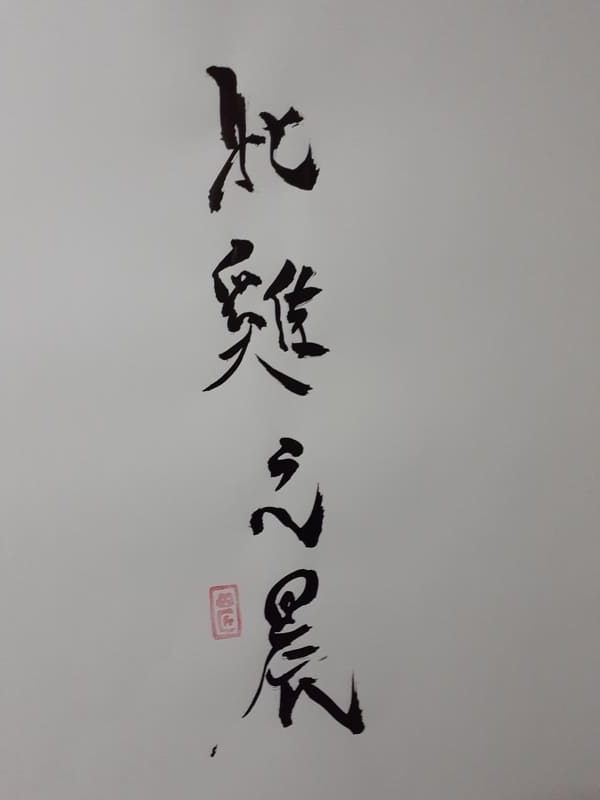 牝雞之晨